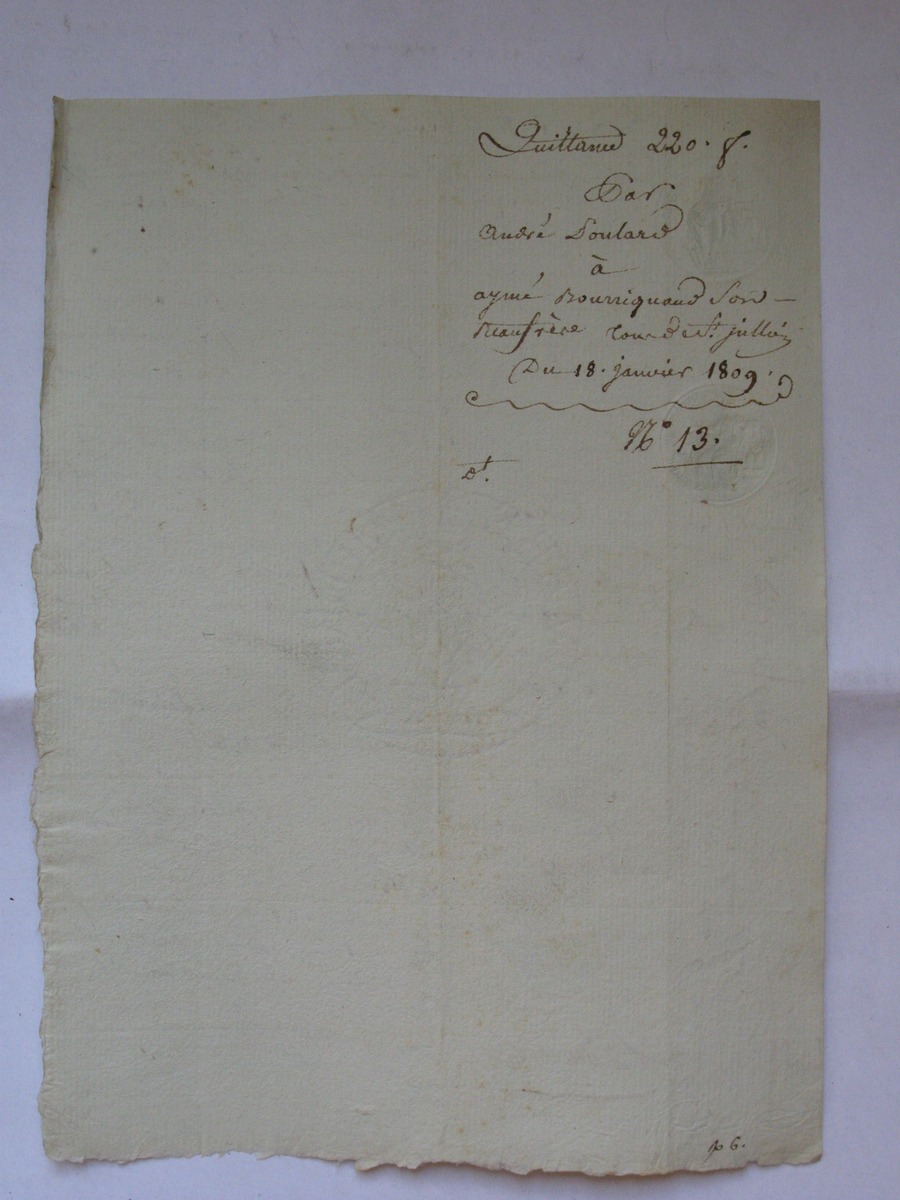 Quittance 220. f.
Par
André Soulard
à
aymé Bourrigaud Son
Beaufrère St. jullien
Du 18. janvier 1809.
N° 13.
p 6.